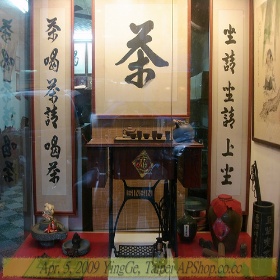 茶
坐請坐請上坐
茶喝茶請喝茶
福
Apr. 5, 2009 YingGe, Taipei APShop.co.cc